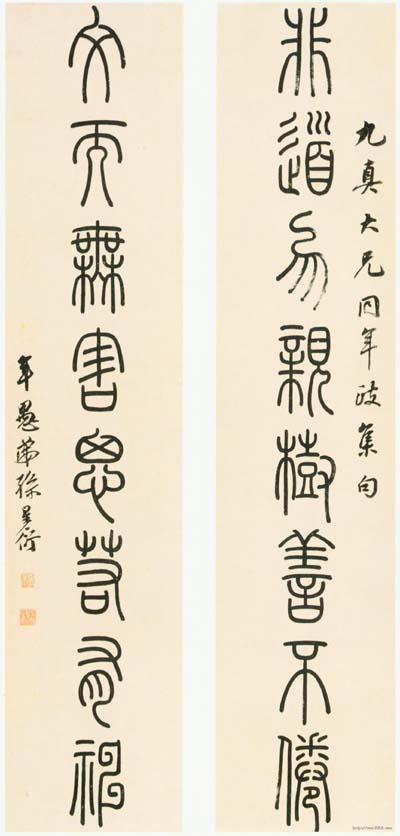 九真大兄同年政集句
非道勿親樹善不倦
文而無害思若有神
年愚弟孫星衍